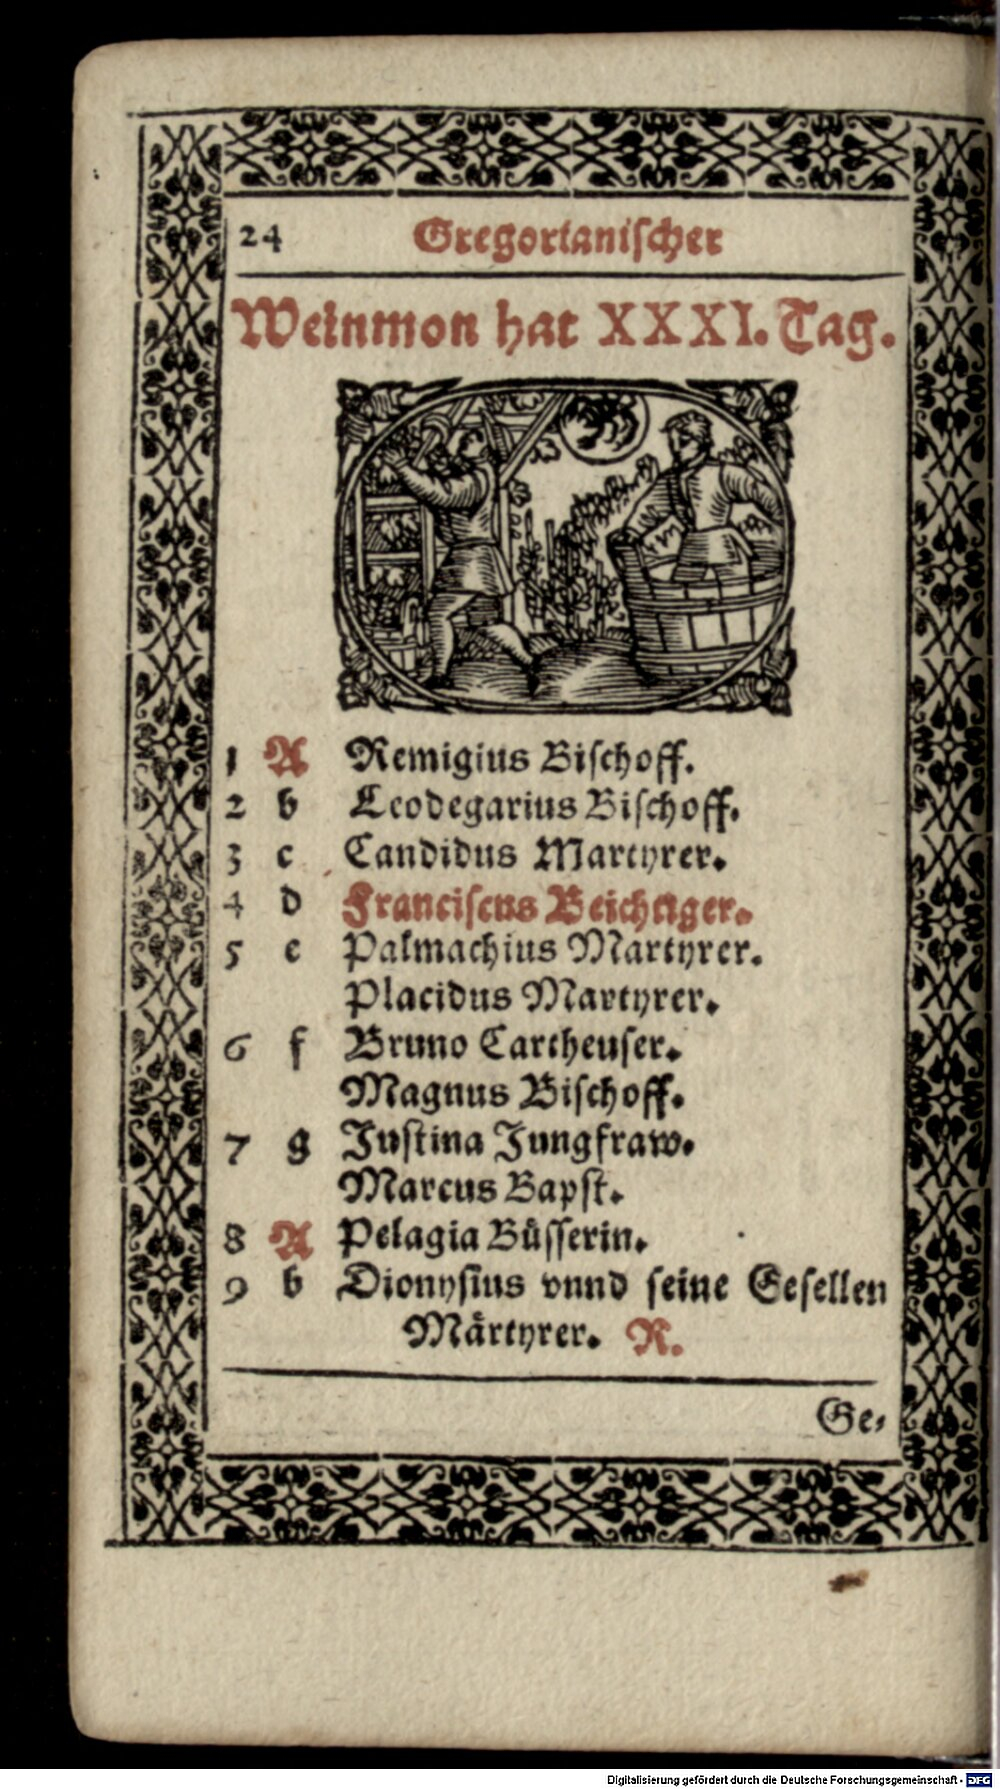 24 Gregorianischer
Weinmon hat XXXI. Tag.
1 A Remigius Bischoff.
2 b Leodegarius Bischoff.
3 c Candidus Martyrer.
4 d Franciscus Beichtiger.
5 e Palmachius Martyrer.
Placidus Martyrer.
6 f Bruno Cartheuser.
Magnus Bischoff.
7 g Justina Jungfraw.
Marcus Bapst.
8 A Pelagia Büsserin.
9 b Dionysius vnnd seine Gesellen
Märtyrer. R.
Ge-
Digitalisierung gefördert durch die Deutsche Forschungsgemeinschaft - DFG